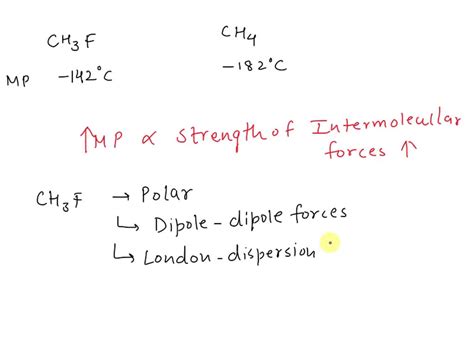 CH3F CH4
MP -142°C -182°C
↑MP ∝ strength of Intermolecullar
forces ↑
CH3F → Polar
↳ Dipole-dipole forces
↳ London-dispersion